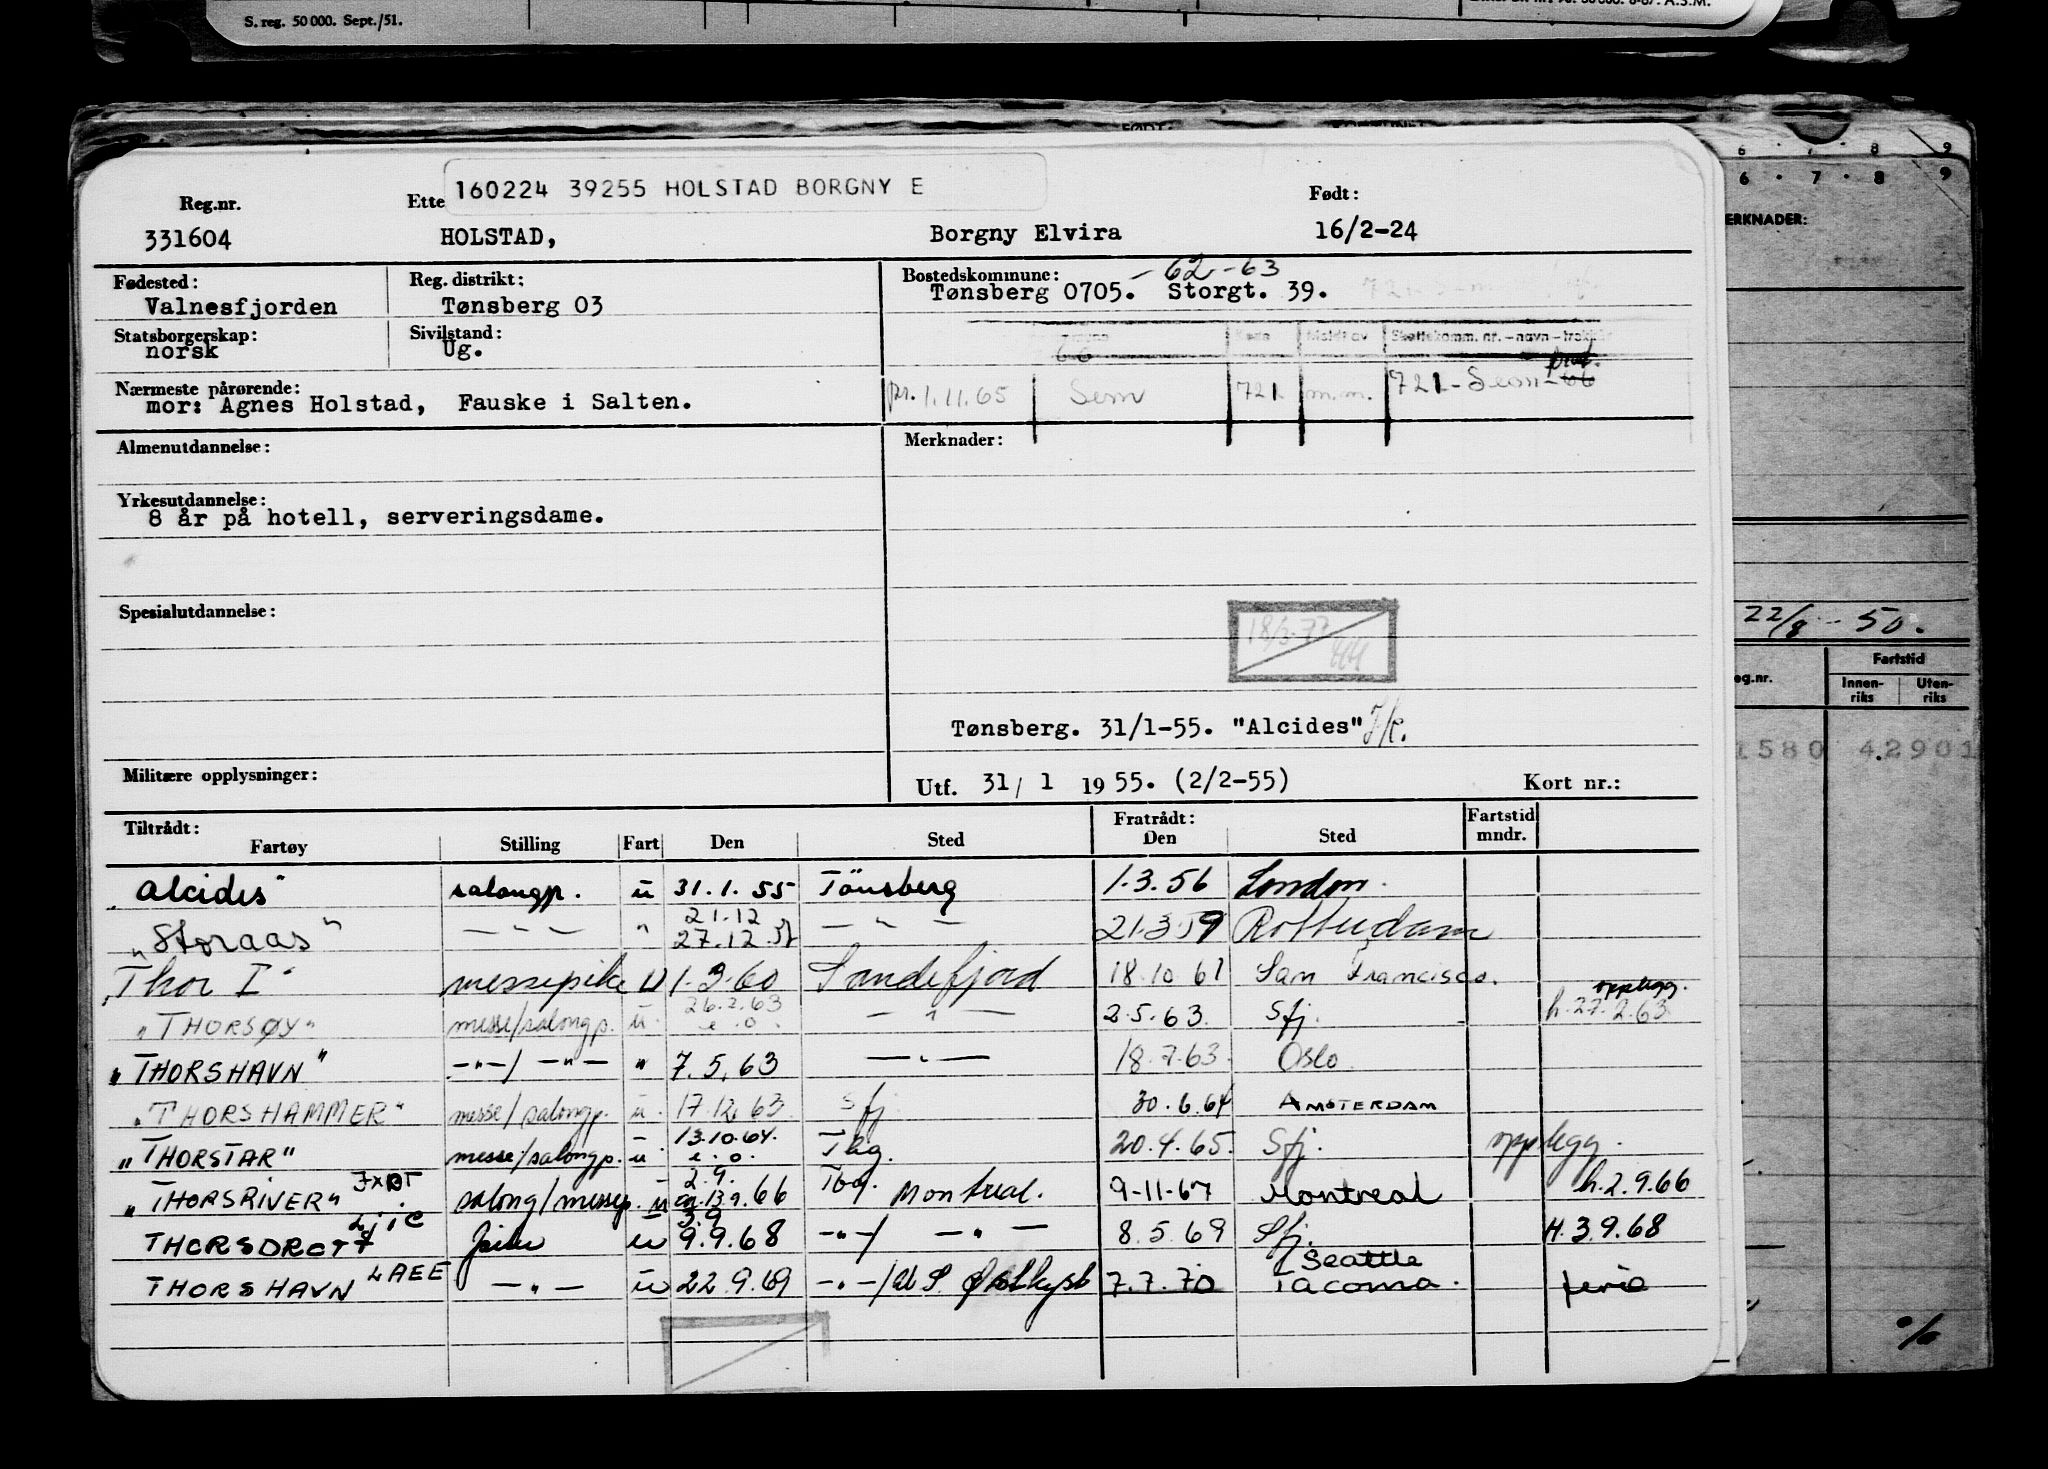 S. reg. 50 000. Sept./51.
160224 39255 HOLSTAD BORGNY E
Reg.nr. Ette Født:
331604 HOLSTAD, Borgny Elvira 16/2-24
Fødested: Reg. distrikt: Bostedskommune: -62-63
Valnesfjorden Tønsberg 03 Tønsberg 0705. Storgt. 39.
Statsborgerskap: Sivilstand:
norsk Ug.
66 Skattekomm. nr. - navn -
Nærmeste pårørende:
mor: Agnes Holstad, Fauske i Salten. 1.11.65 Sem 721 m.m. 721-Sem-66
Almenutdannelse: Merknader:
Yrkesutdannelse:
8 år på hotell, serveringsdame.
Spesialutdannelse:
Tønsberg. 31/1-55. "Alcides"
Militære opplysninger: Utf. 31/ 1 1955. (2/2-55) Kort nr.:
Tiltrådt: Fratrådt: Fartstid
Fartøy Stilling Fart Den Sted Den Sted mndr.
"Alcides" salongp. u 31.1.55 Tönsberg 1.3.56 London.
21.12
"Storaas" — " — " 27.12 — " — 21.3.59 Rotterdam
"Thor I" messepike U 1.3.60 Sandefjord 18.10.61 San Francisco.
26.2.63 opplegg.
"THORSØY" messe/salongp. u. e.o. — " — 2.5.63. Sfj. h.27.2.63
"THORSHAVN" —"—/—"— " 7.5.63 — " — 18.7.63. Oslo.
"THORSHAMMER" messe/salongp. u. 17.12.63 Sfj 30.6.64 AMSTERDAM
13.10.64.
"THORSTAR" messe/salongp. u e.o. Tbg. 20.4.65. Sfj. opplegg.
2.9.
"THORSRIVER" salong/messep. u 13.9.66 Tbg. Montreal. 9-11-67 Montreal h.2.9.66
LJIC 3.9
THORSDROTT u 9.9.68 —"—/ —"— 8.5.69 Sfj. H.3.9.68
Seattle
THORSHAVN LAEE — " — u 22.9.69 —"—/ Østkyst 7.7.70 Tacoma. ferie
6 7 8 9
6 . 7 . 8 9
ERKNADER:
22/8 - 50.
Fartstid
eg.nr. Innen-riks Uten-riks
1580 42901